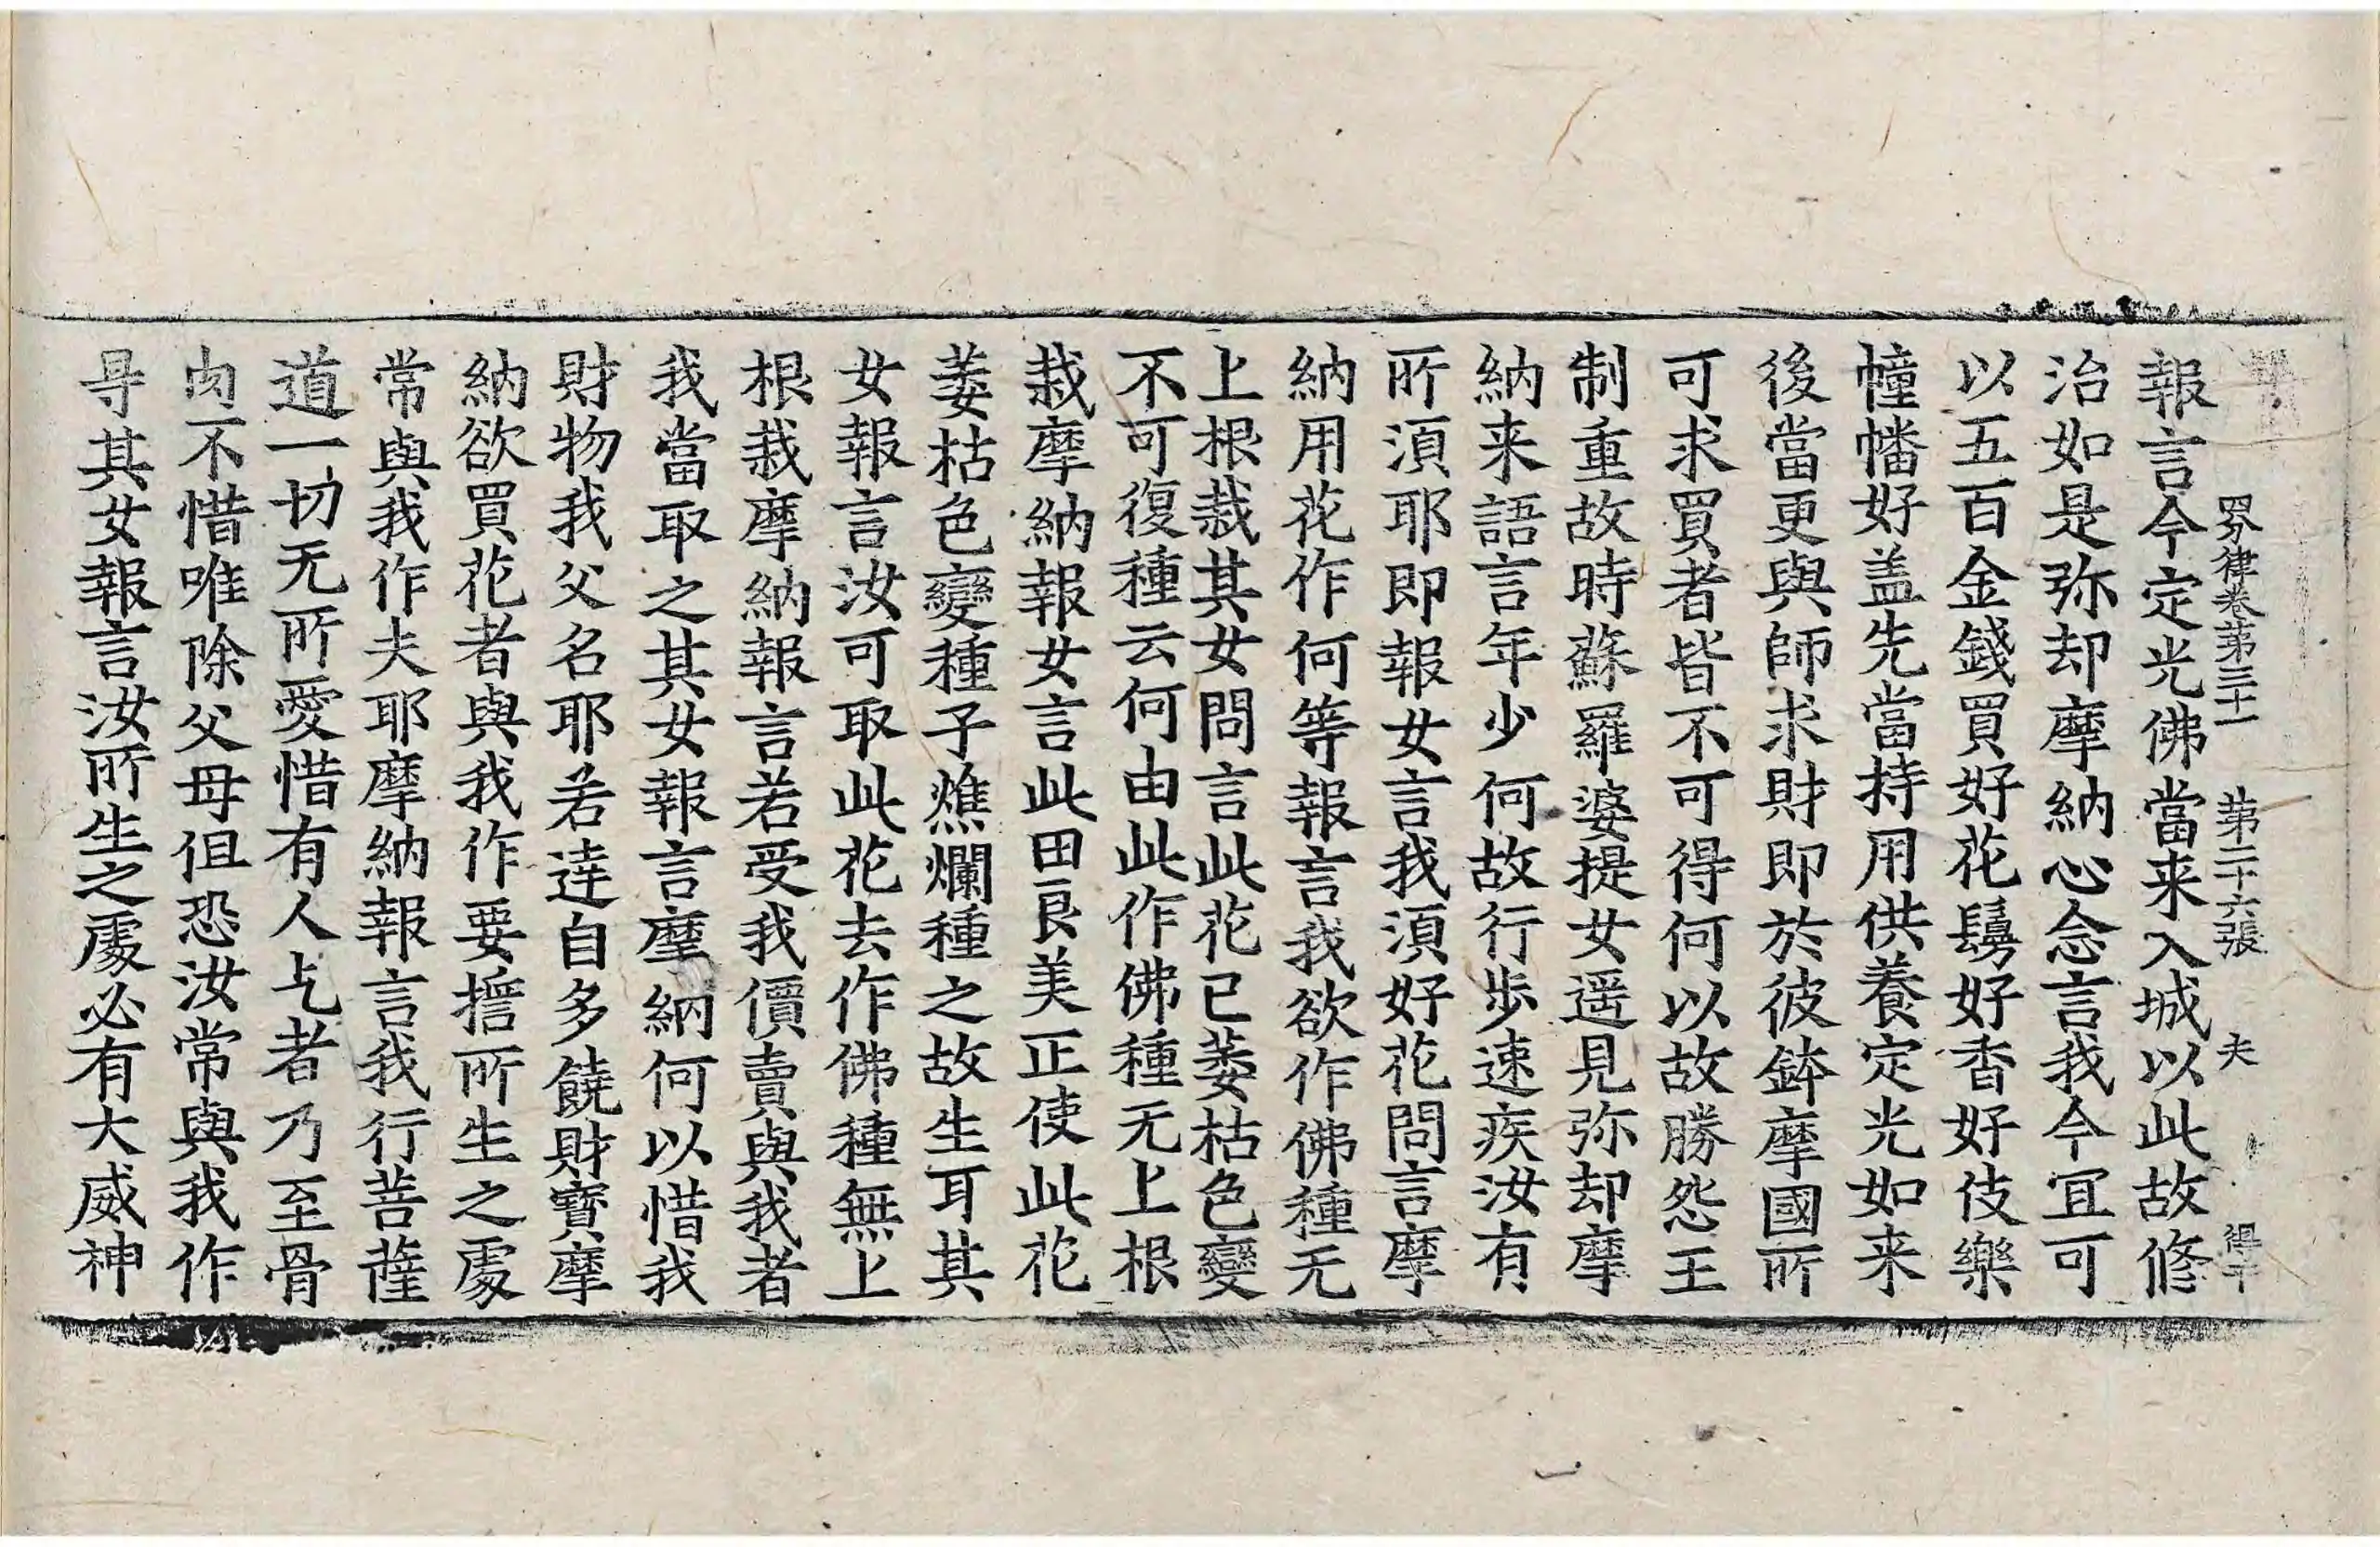 四分律卷第三十一 第二十六張 夫 得
報言今定光佛當来入城以此故修
治如是弥却摩納心念言我今冝可
以五百金錢買好花鬘好香好伎樂
幢幡好盖先當持用供養定光如来
後當更與師求財即於彼鉢摩國所
可求買者皆不可得何以故勝怨王
制重故時蘇羅婆提女遥見弥却摩
納来語言年少何故行歩速疾汝有
所湏耶即報女言我湏好花問言摩
納用花作何等報言我欲作佛種无
上根栽其女問言此花已萎枯色變
不可復種云何由此作佛種无上根
栽摩納報女言此田良美正使此花
萎枯色變種子燋爛種之故生耳其
女報言汝可取此花去作佛種無上
根栽摩納報言若受我價賣與我者
我當取之其女報言摩納何以惜我
財物我父名耶若達自多饒財寶摩
納欲買花者與我作要擔所生之處
常與我作夫耶摩納報言我行菩薩
道一切无所愛惜有人乞者乃至骨
肉不惜唯除父母伹恐汝常與我作
㝵其女報言汝所生之處必有大威神